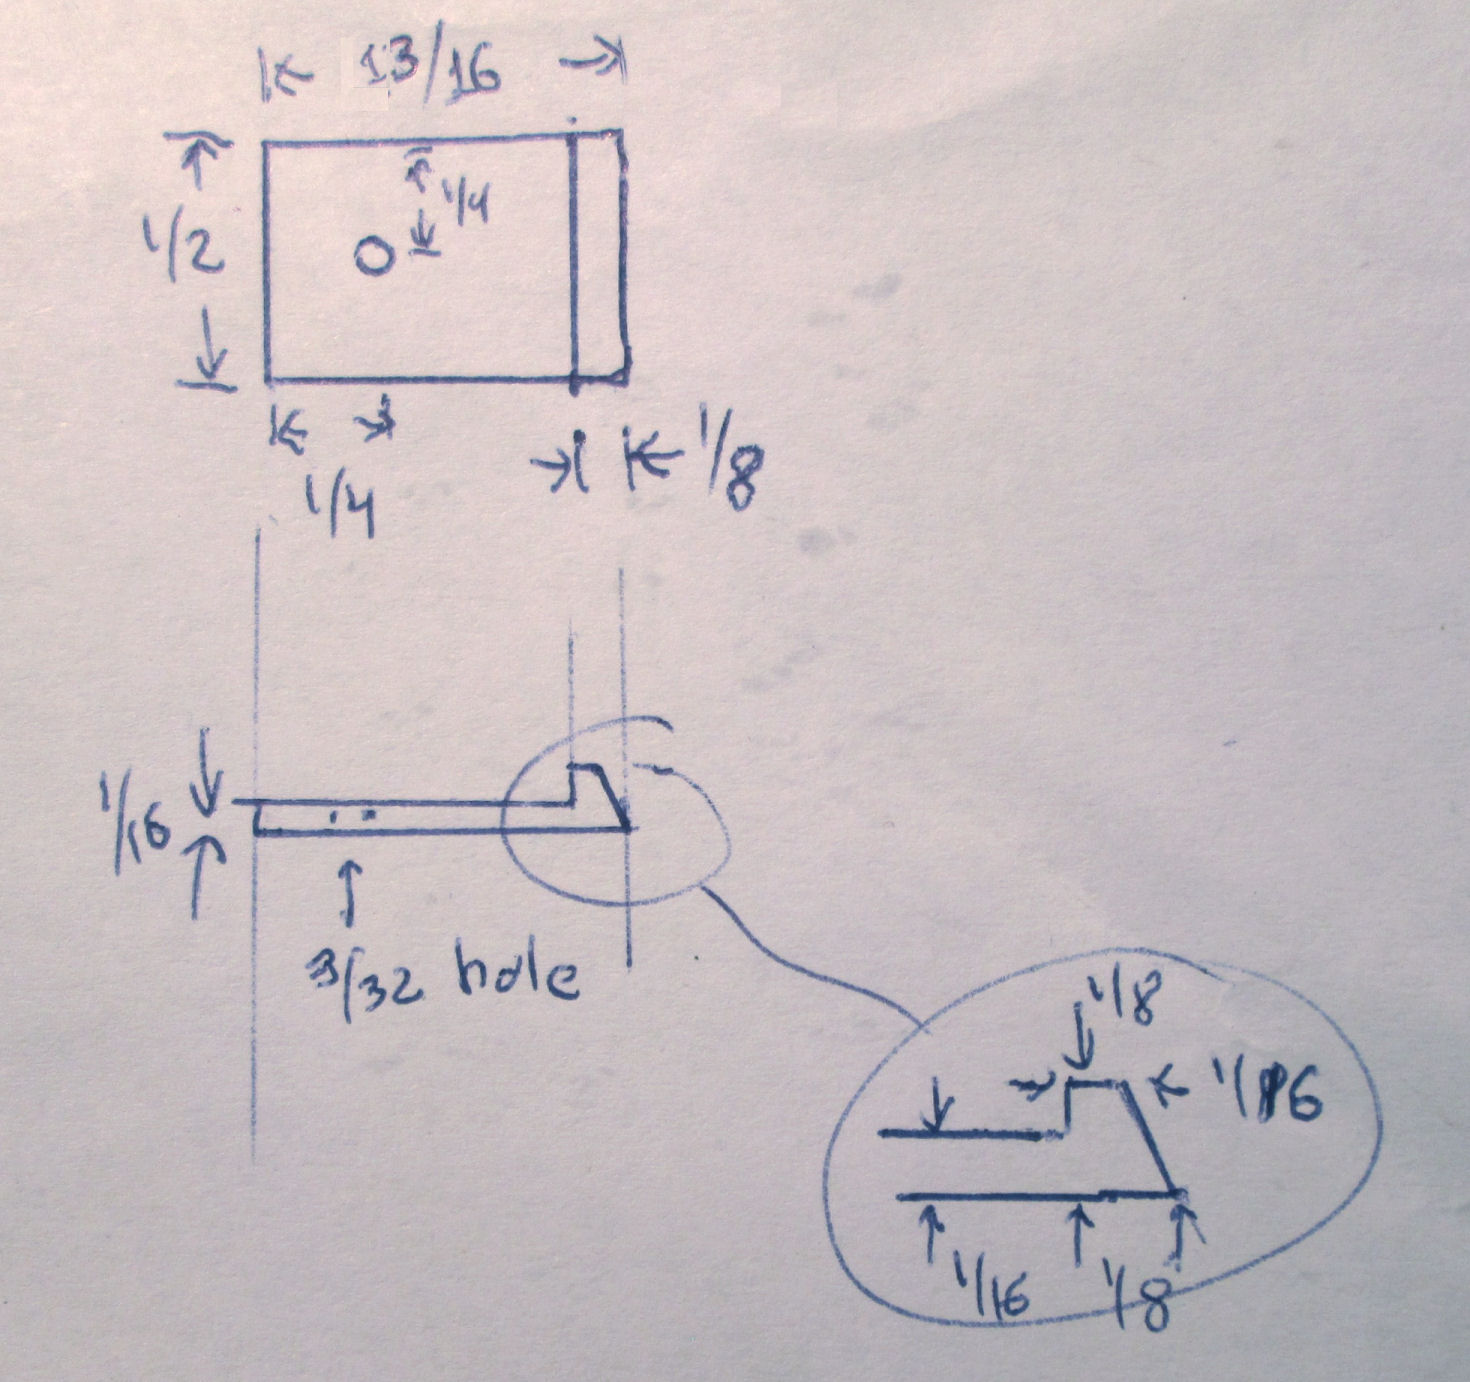 13/16
1/4
1/2
1/4
1/8
1/16
3/32 hole
1/8
1/16
1/16
1/8